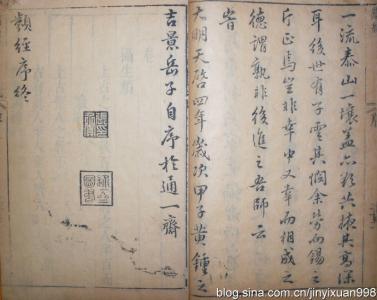 一流泰山一壤蓋亦欲共掖其高深
耳後世有子雲其憫余勞而錫之
斤正焉豈非幸中又幸而相成之
德謂孰非後進之吾師云
旹
大明天啟四年歲次甲子黃鍾之
吉景岳子自序於通一齋
類經序終
blog.sina.com.cn/jinyixuan998